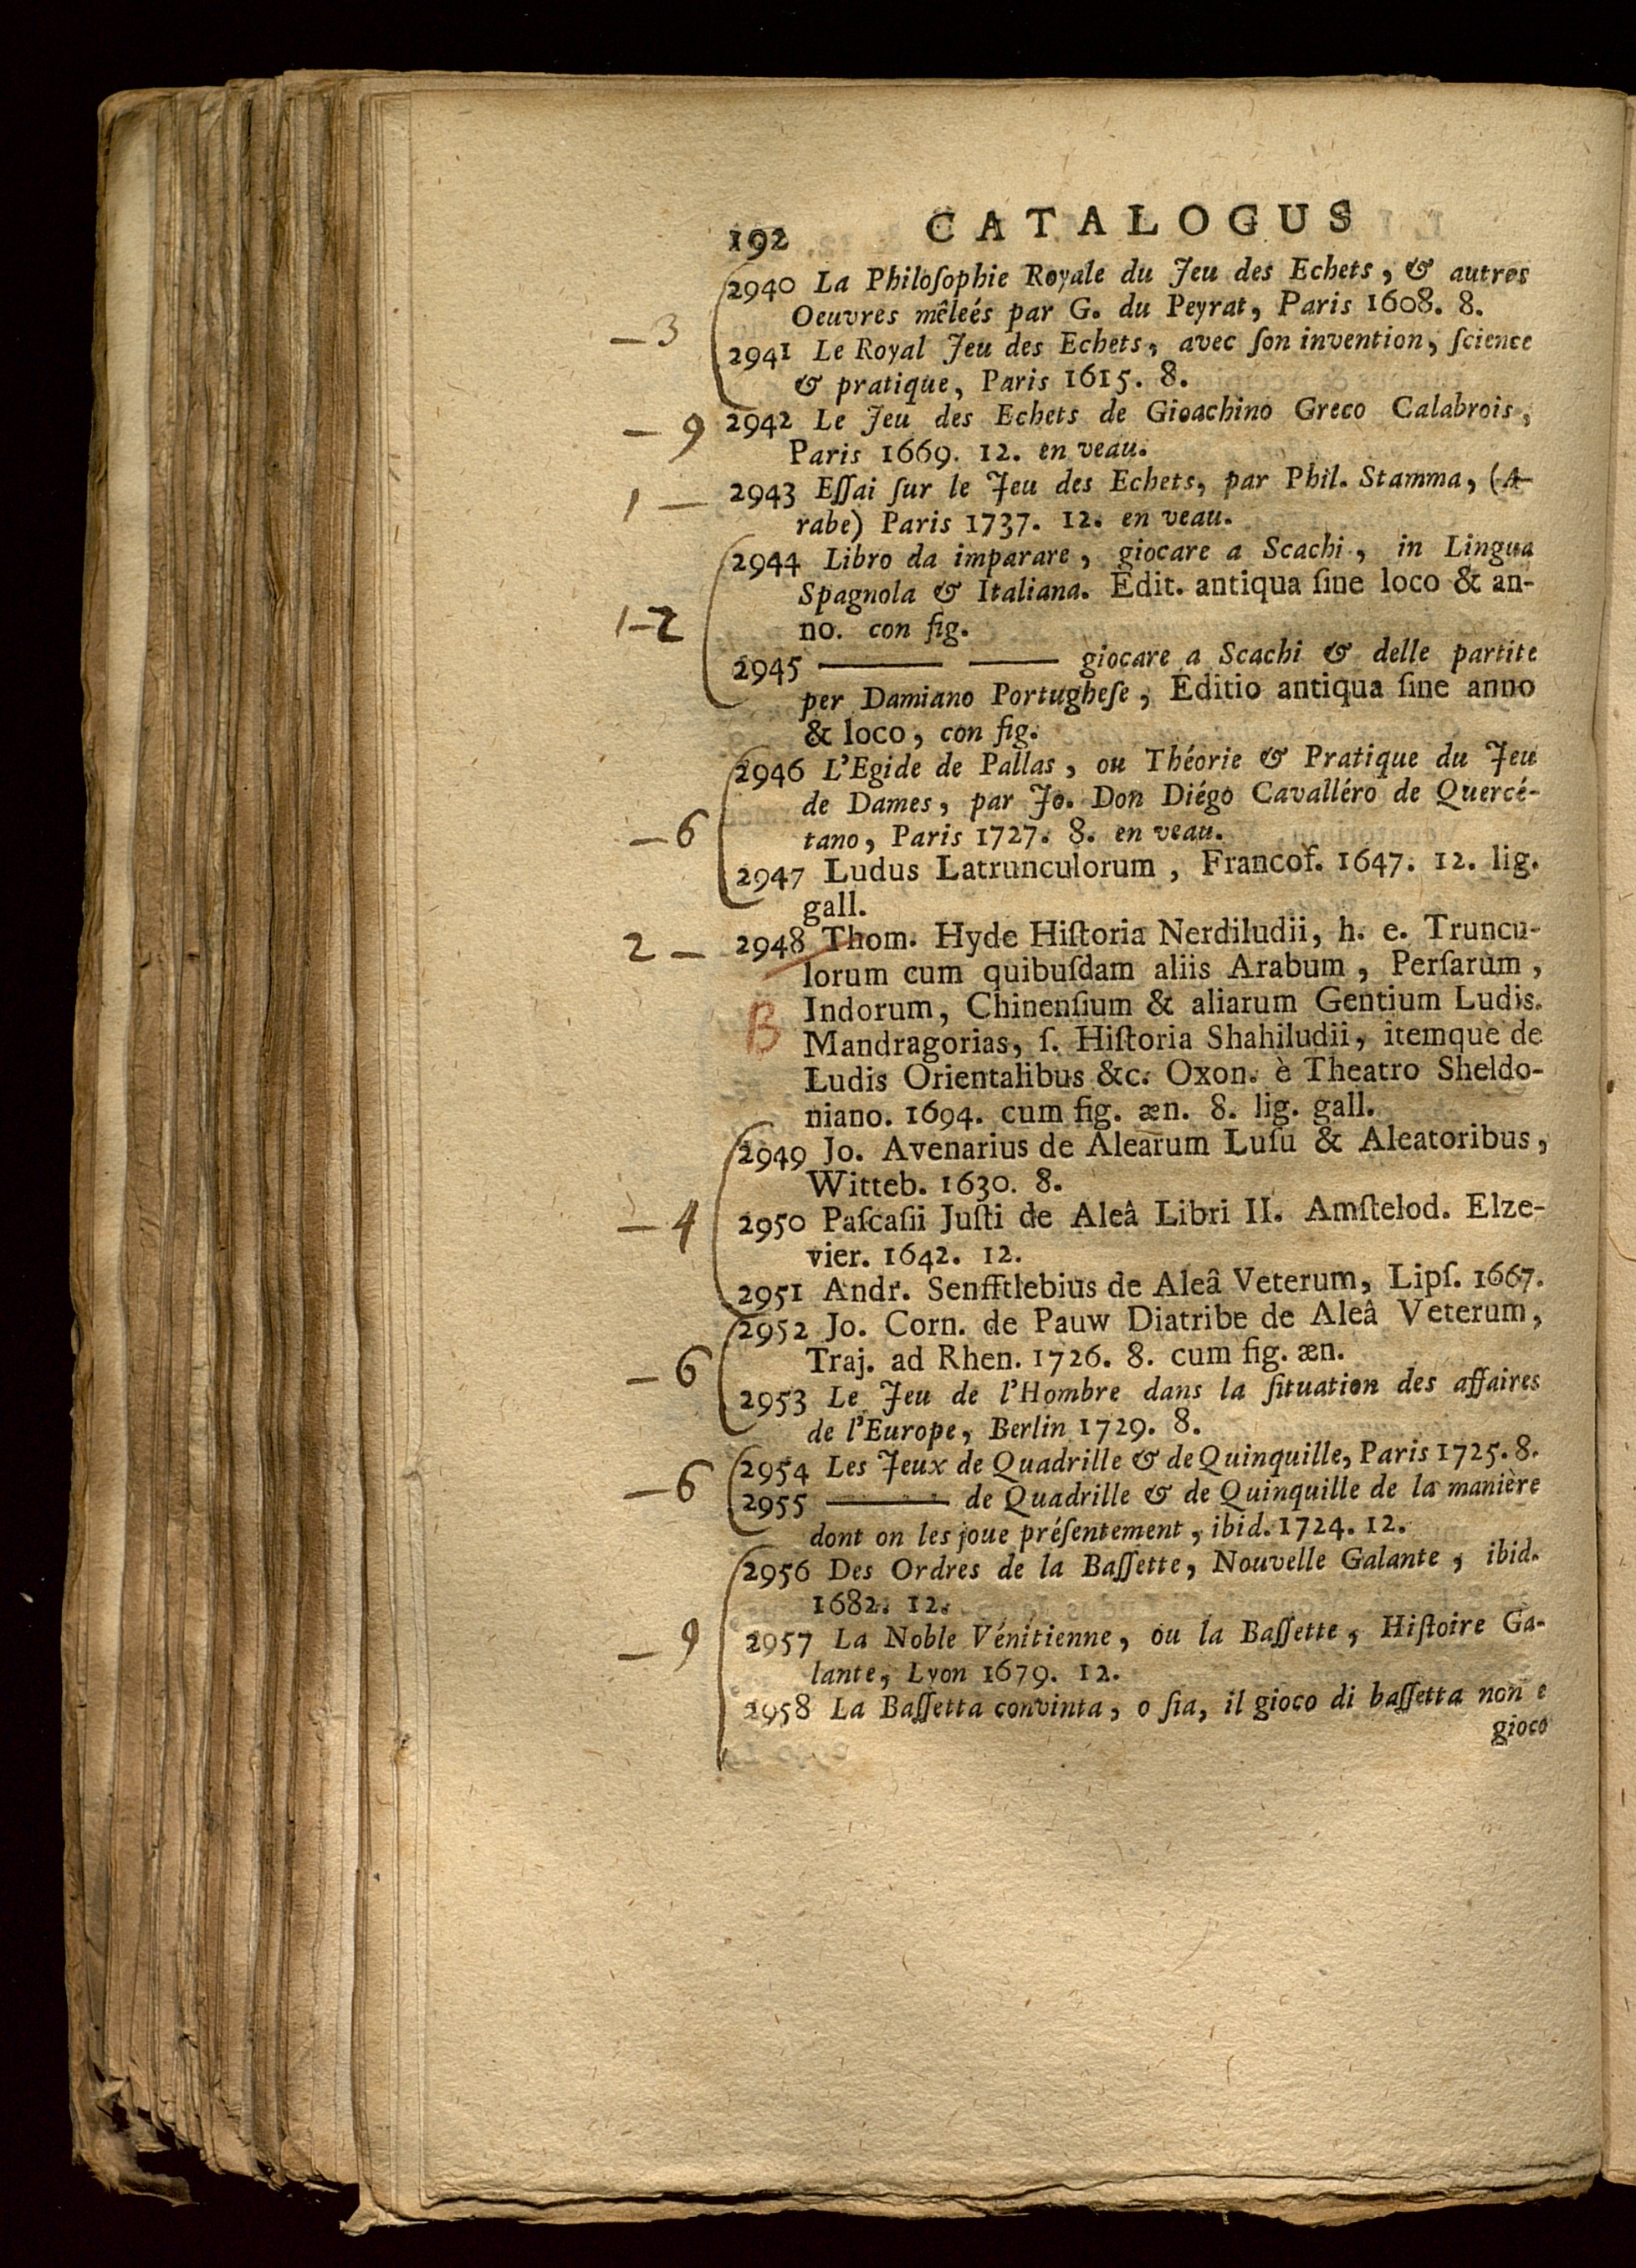 192 CATALOGUS
2940 La Philoſophie Royale du Jeu des Echets, & autres
Oeuvres mêleés par G. du Peyrat, Paris 1608. 8.
— 3
2941 Le Royal Jeu des Echets, avec ſon invention, ſcience
& pratique, Paris 1615. 8.
— 9 2942 Le Jeu des Echets de Gioachino Greco Calabrois,
Paris 1669. 12. en veau.
1 — 2943 Eſſai ſur le Jeu des Echets, par Phil. Stamma, (A-
rabe) Paris 1737. 12. en veau.
2944 Libro da imparare, giocare a Scachi, in Lingua
Spagnola & Italiana. Edit. antiqua ſine loco & an-
1—2 no. con fig.
2945 ——— ——— giocare a Scachi & delle partite
per Damiano Portugheſe, Editio antiqua ſine anno
& loco, con fig.
2946 L'Egide de Pallas, ou Théorie & Pratique du Jeu
de Dames, par Jo. Don Diégo Cavalléro de Quercé-
— 6 tano, Paris 1727. 8. en veau.
2947 Ludus Latrunculorum, Francof. 1647. 12. lig.
gall.
2 — 2948 Thom. Hyde Hiſtoria Nerdiludii, h. e. Truncu-
lorum cum quibuſdam aliis Arabum, Perſarum,
B Indorum, Chinenſium & aliarum Gentium Ludis.
Mandragorias, ſ. Hiſtoria Shahiludii, itemque de
Ludis Orientalibus &c. Oxon. è Theatro Sheldo-
niano. 1694. cum fig. æn. 8. lig. gall.
2949 Jo. Avenarius de Alearum Luſu & Aleatoribus,
Witteb. 1630. 8.
— 4 2950 Paſcaſii Juſti de Aleâ Libri II. Amſtelod. Elze-
vier. 1642. 12.
2951 Andr. Senfftlebius de Aleâ Veterum, Lipſ. 1667.
2952 Jo. Corn. de Pauw Diatribe de Aleâ Veterum,
— 6 Traj. ad Rhen. 1726. 8. cum fig. æn.
2953 Le Jeu de l'Hombre dans la ſituation des affaires
de l'Europe, Berlin 1729. 8.
2954 Les Jeux de Quadrille & de Quinquille, Paris 1725. 8.
— 6 2955 ——— de Quadrille & de Quinquille de la manière
dont on les joue préſentement, ibid. 1724. 12.
2956 Des Ordres de la Baſſette, Nouvelle Galante, ibid.
1682. 12.
— 9 2957 La Noble Vénitienne, ou la Baſſette, Hiſtoire Ga-
lante, Lyon 1679. 12.
2958 La Baſſetta convinta, o ſia, il gioco di baſſetta non e
gioco